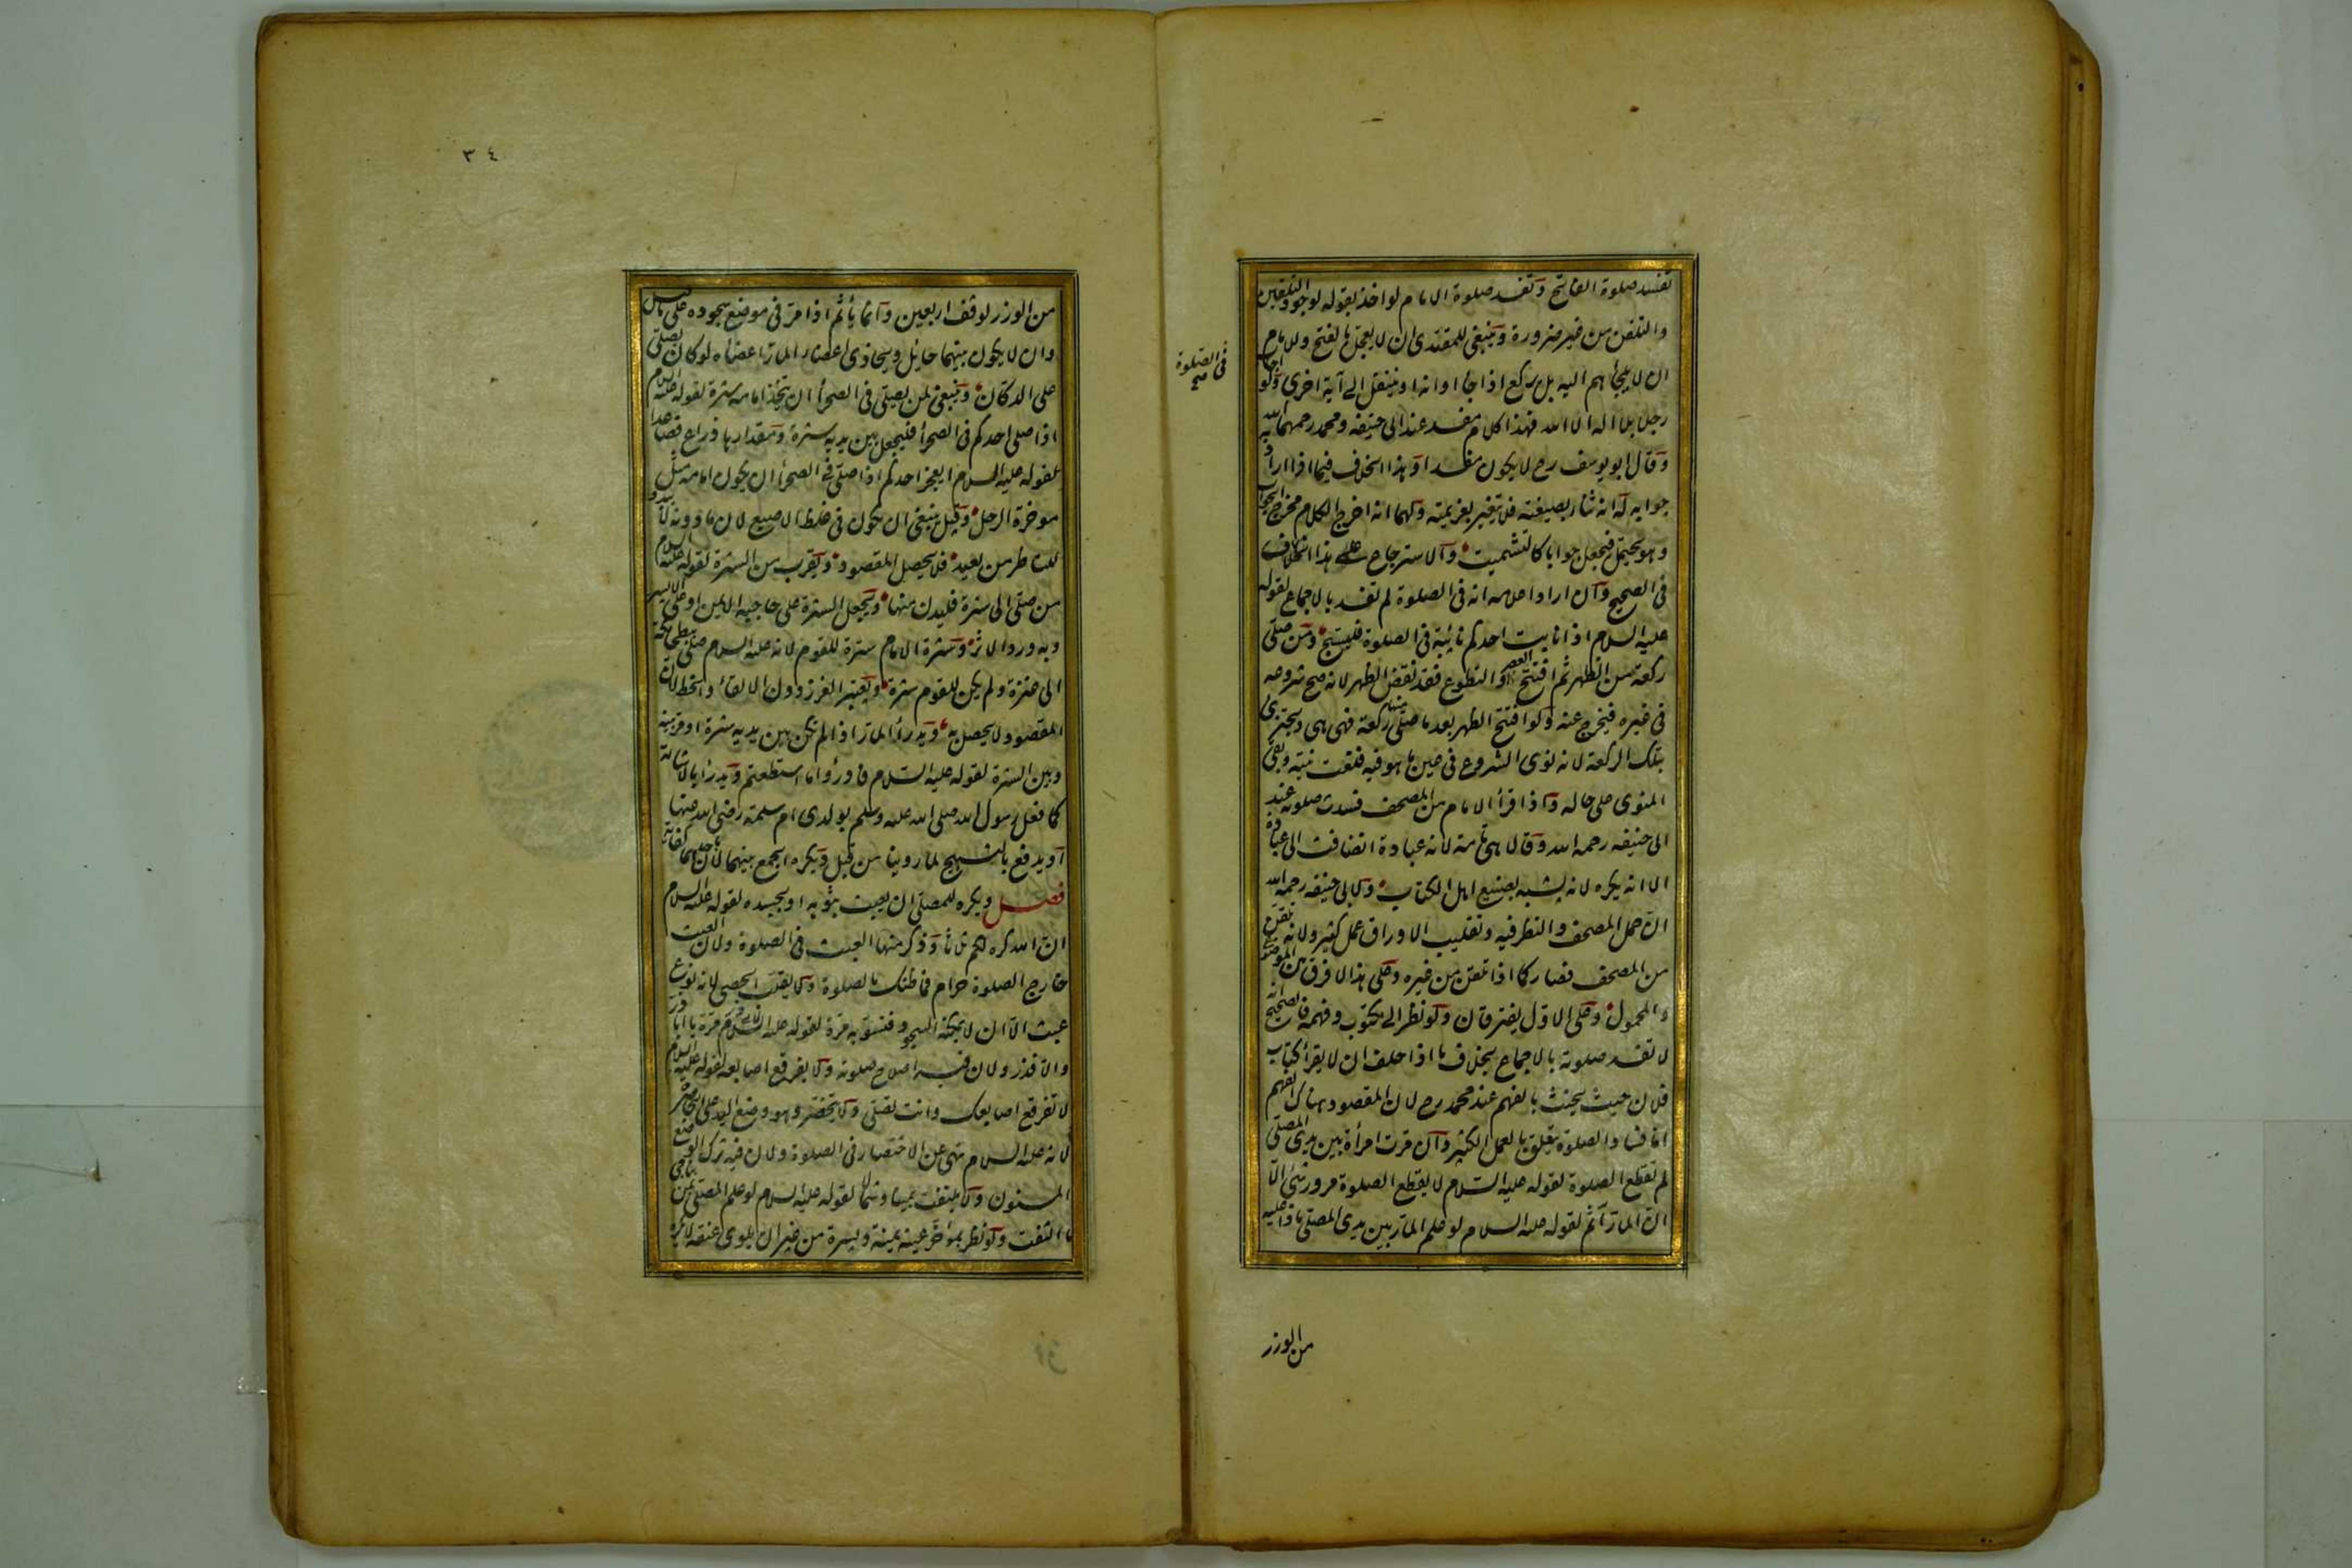 تفسد صلوة الفاتح وتفسد صلوة الامام لو اخذ بقوله لوجود التلقين
والتلقن من غير ضرورة وينبغي للمقتدي ان لا يعجل بالفتح وللامام
ان لا يلجأهم اليه بل يركع اذا جاء اوانه او ينتقل الى آية اخرى ولو اجاب
في الصلوة صح
رجل بلا اله الا الله فهذا كلام مفسد عند ابي حنيفه ومحمد رحمهما الله
وقال ابو يوسف رح لا يكون مفسدا وهذا الخلاف فيما اذا اراد به
جوابه له انه ثناء بصيغته فلا يتغير بعزيمته ولهما انه اخرج الكلام مخرج الجواب
وهو يحتمله فيجعل جوابا كالتشميت والاسترجاع على هذا الخلاف
في الصحيح وان اراد اعلامه انه في الصلوة لم تفسد بالاجماع لقوله
عليه السلام اذا نابت احدكم نائبة في الصلوة فليسبح ومن صلى
ركعة من الظهر ثم افتتح العصر او التطوع فقد نقض الظهر لانه صح شروعه
في غيره فيخرج عنه ولو افتتح الظهر بعد ما صلى منها ركعة فهي هي ويجتزى
بتلك الركعة لانه نوى الشروع في عين ما هو فيه فلغت نيته وبقي
المنوى على حاله واذا قرأ الامام من المصحف فسدت صلوته عند
ابي حنيفه رحمه الله وقالا هي تامة لانه عبادة انضافت الى عبادة
الا انه يكره لانه يشبه بصنيع اهل الكتاب ولابي حنيفه رحمه الله
ان حمل المصحف والنظر فيه وتقليب الاوراق عمل كثير ولانه تلقن
من المصحف فصار كما اذا تلقن من غيره وعلى هذا لا فرق بين الموضوع
والمحمول وعلى الاول يفترقان ولو نظر الى مكتوب وفهمه فالصحيح انه
لا تفسد صلوته بالاجماع بخلاف ما اذا حلف ان لا يقرأ كتاب
فلان حيث يحنث بالفهم عند محمد رح لان المقصود هناك الفهم
اما فساد الصلوة يتعلق بالعمل الكثير وان مرت امرأة بين يدي المصلي
لم تقطع الصلوة لقوله عليه السلام لا يقطع الصلوة مرور شئ الا
ان المار آثم لقوله عليه السلام لو علم المار بين يدي المصلي ماذا عليه
من الوزر
٣٤
من الوزر لوقف اربعين وانما يأثم اذا مر في موضع سجوده على ما قيل
وان لا يكون بينهما حائل ويحاذي اعضاء المار اعضاءه لو كان يصلي
على الدكان وينبغي لمن يصلي في الصحرا ان يتخذ امامه سترة لقوله عليه السلام
اذا صلى احدكم في الصحرأ فليجعل بين يديه سترة ومقدارها ذراع فصاعدا
لقوله عليه السلام ايعجز احدكم اذا صلى في الصحرأ ان يكون امامه مثل
موخرة الرحل وقيل ينبغي ان تكون في غلظ الاصبع لان ما دونه لا يبدو
للناظر من بعيد فلا يحصل المقصود ويقرب من السترة لقوله عليه السلام
من صلى الى سترة فليدن منها ويجعل السترة على حاجبه الايمن او على الايسر
وبه ورد الاثر وسترة الامام سترة للقوم لانه عليه السلام صلى ببطحا مكة
الى عنزة ولم يكن للقوم سترة ويعتبر الغرز دون الالقاء والخط لان
المقصود لا يحصل به ويدرأ المار اذا لم تكن بين يديه سترة او مر بينه
وبين السترة لقوله عليه السلام فادرؤا ما استطعتم ويدرأ بالاشارة
كما فعل رسول الله صلى الله عليه وسلم بولدي ام سلمة رضي الله عنها
او يدفع بالتسبيح لما روينا من قبل ويكره الجمع بينهما لان باحدهما كفاية
فصل ويكره للمصلي ان يعبث بثوبه او بجسده لقوله عليه السلام
ان الله كره لكم ثلاثا وذكر منها العبث في الصلوة ولان العبث
خارج الصلوة حرام فما ظنك بالصلوة ولا يقلب الحصى لانه نوع
عبث الا ان لا يمكنه السجود فتسويه مرة لقوله عليه السلام مرة يا ابا ذر
والا فذر ولان فيه اصلاح صلوته ولا يفرقع اصابعه لقوله عليه السلام
لا تفرقع اصابعك وانت تصلي ولا يتخصر وهو وضع اليد على الخاصرة
لانه عليه السلام نهى عن الاختصار في الصلوة ولان فيه ترك الوضع
المسنون ولا يلتفت يمينا وشمالا لقوله عليه السلام لو علم المصلي من يناجي
ما التفت ولو نظر بمؤخر عينه يمنة ويسرة من غير ان يلوى عنقه لا يكره